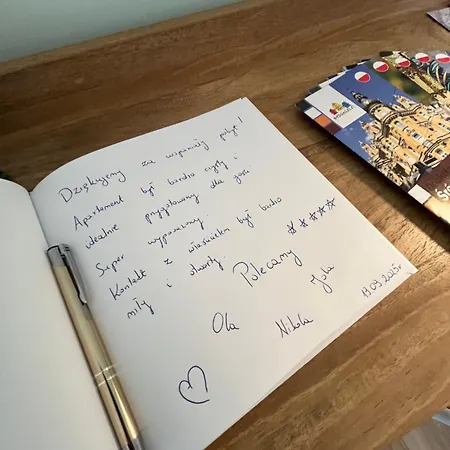 Dziękujemy za wspaniały pobyt!
Apartament był bardzo czysty i
idealnie przygotowany dla gości
Super wyposażony.
Kontakt z właścicielem był bardzo
miły i otwarty.
Polecamy
Ola
Nikola
Jola
13.09.2025r